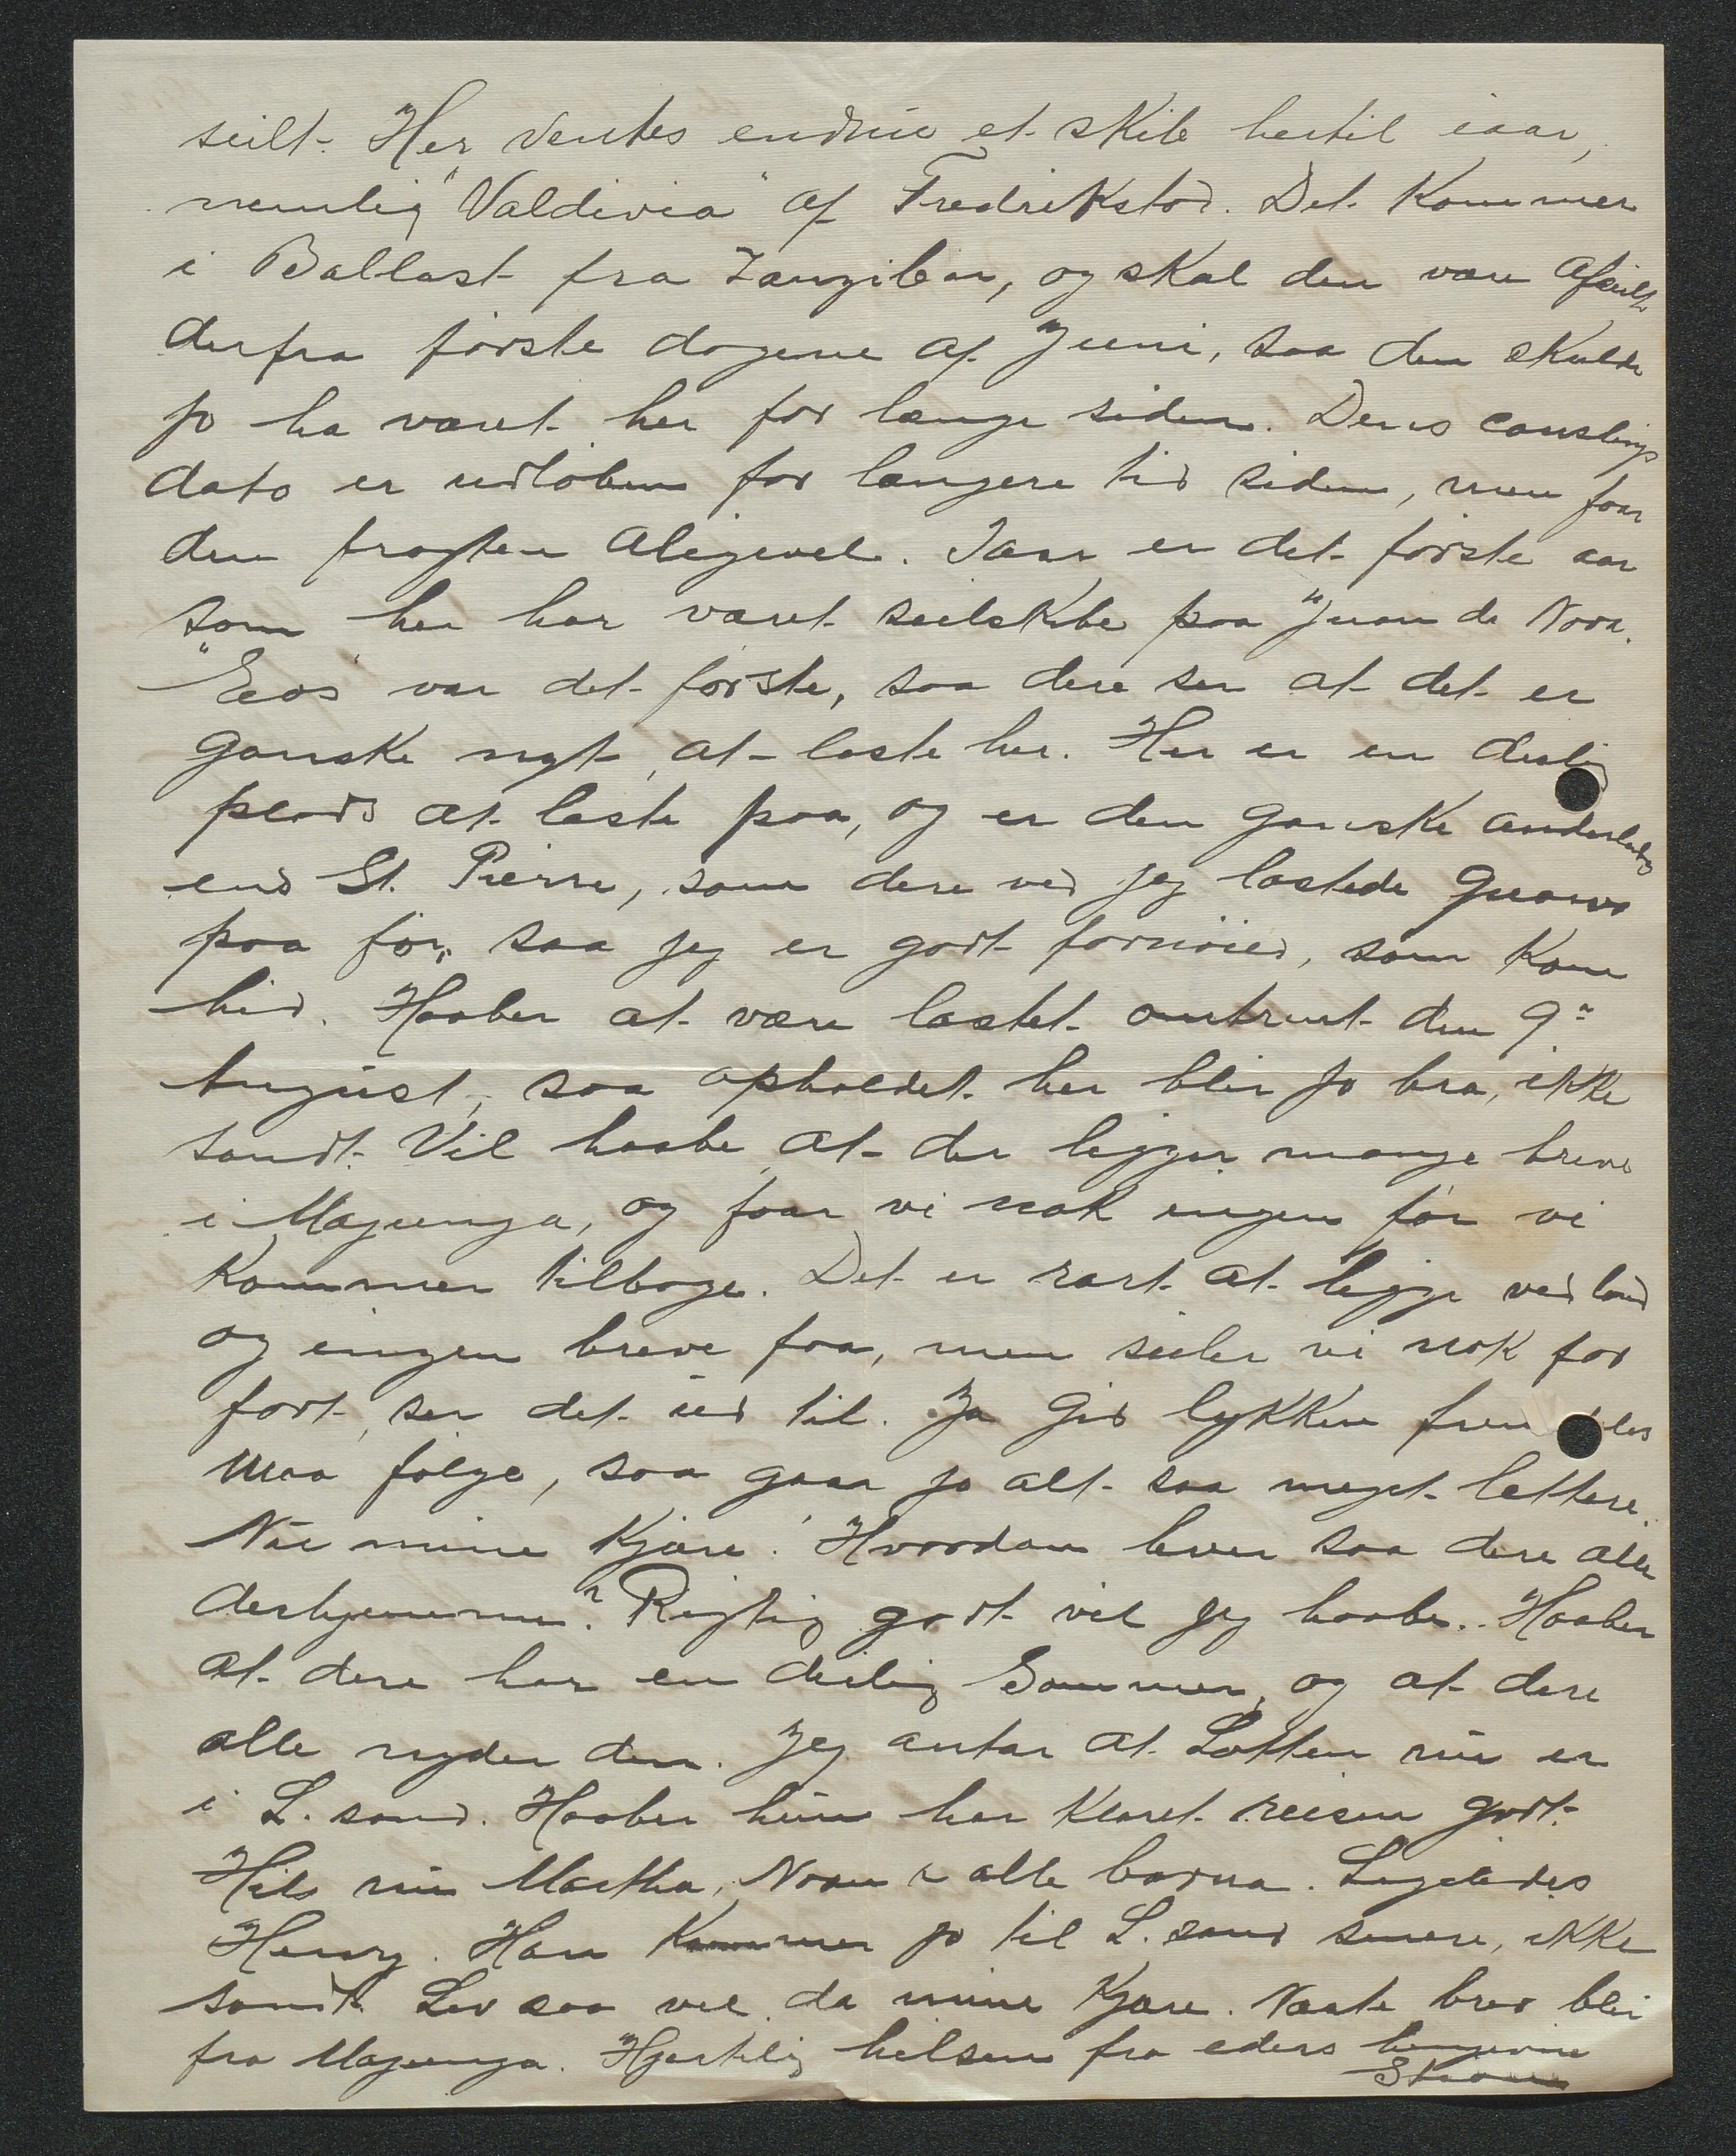 seilt. Her ventes endnu et skib hertil iaar,
nemlig "Valdivia" af Fredrikstad. Det kommer
i Ballast fra Zanzibar, og skal den være afseilt
derfra første dagene af Juni, saa den skulde
jo ha været her for længe siden. Deres canslings
dato er udløben for længere tid siden, men faar
den fragten aligevel. Iaar er det første aar
som her har været seilskibe paa "Juan de Nova.
"Eos" var det første, saa dere ser at det er
ganske nyt at laste her. Her er en deilig
plads at laste paa, og er den ganske anderledes
end St. Pierre, som dere ved jeg lastede Guano
paa før, saa jeg er godt fornøied, som kom
hid. Haaber at være lastet omtrent den 9de
August, saa opholdet her blir jo bra, ikke
sandt. Vil haabe at der ligger mange breve
i Majunga, og faar vi nok ingen før vi
kommer tilbage. Det er rart at ligge ved land
og ingen breve faa, men seiler vi nok for
fort, ser det ud til. Ja gid lykken frem les
maa følge, saa gaar jo alt saa meget lettere.
Nu mine Kjære! Hvordan lever saa dere alle
derhjemme? Rigtig godt vil jeg haabe. Haaber
at dere har en deilig Sommer, og at dere
alle nyder den. Jeg antar at Lotten nu er
i L. sand. Haaber hun har klaret reisen godt.
Hils nu Martha, Noam & alle barna. Ligeledes
Henry. Han kommer jo til L. sand senere, ikke
sandt. Lev saa vel da mine Kjære. Næste brev blir
fra Majunga. Hjertelig hilsen fra eders hengivne